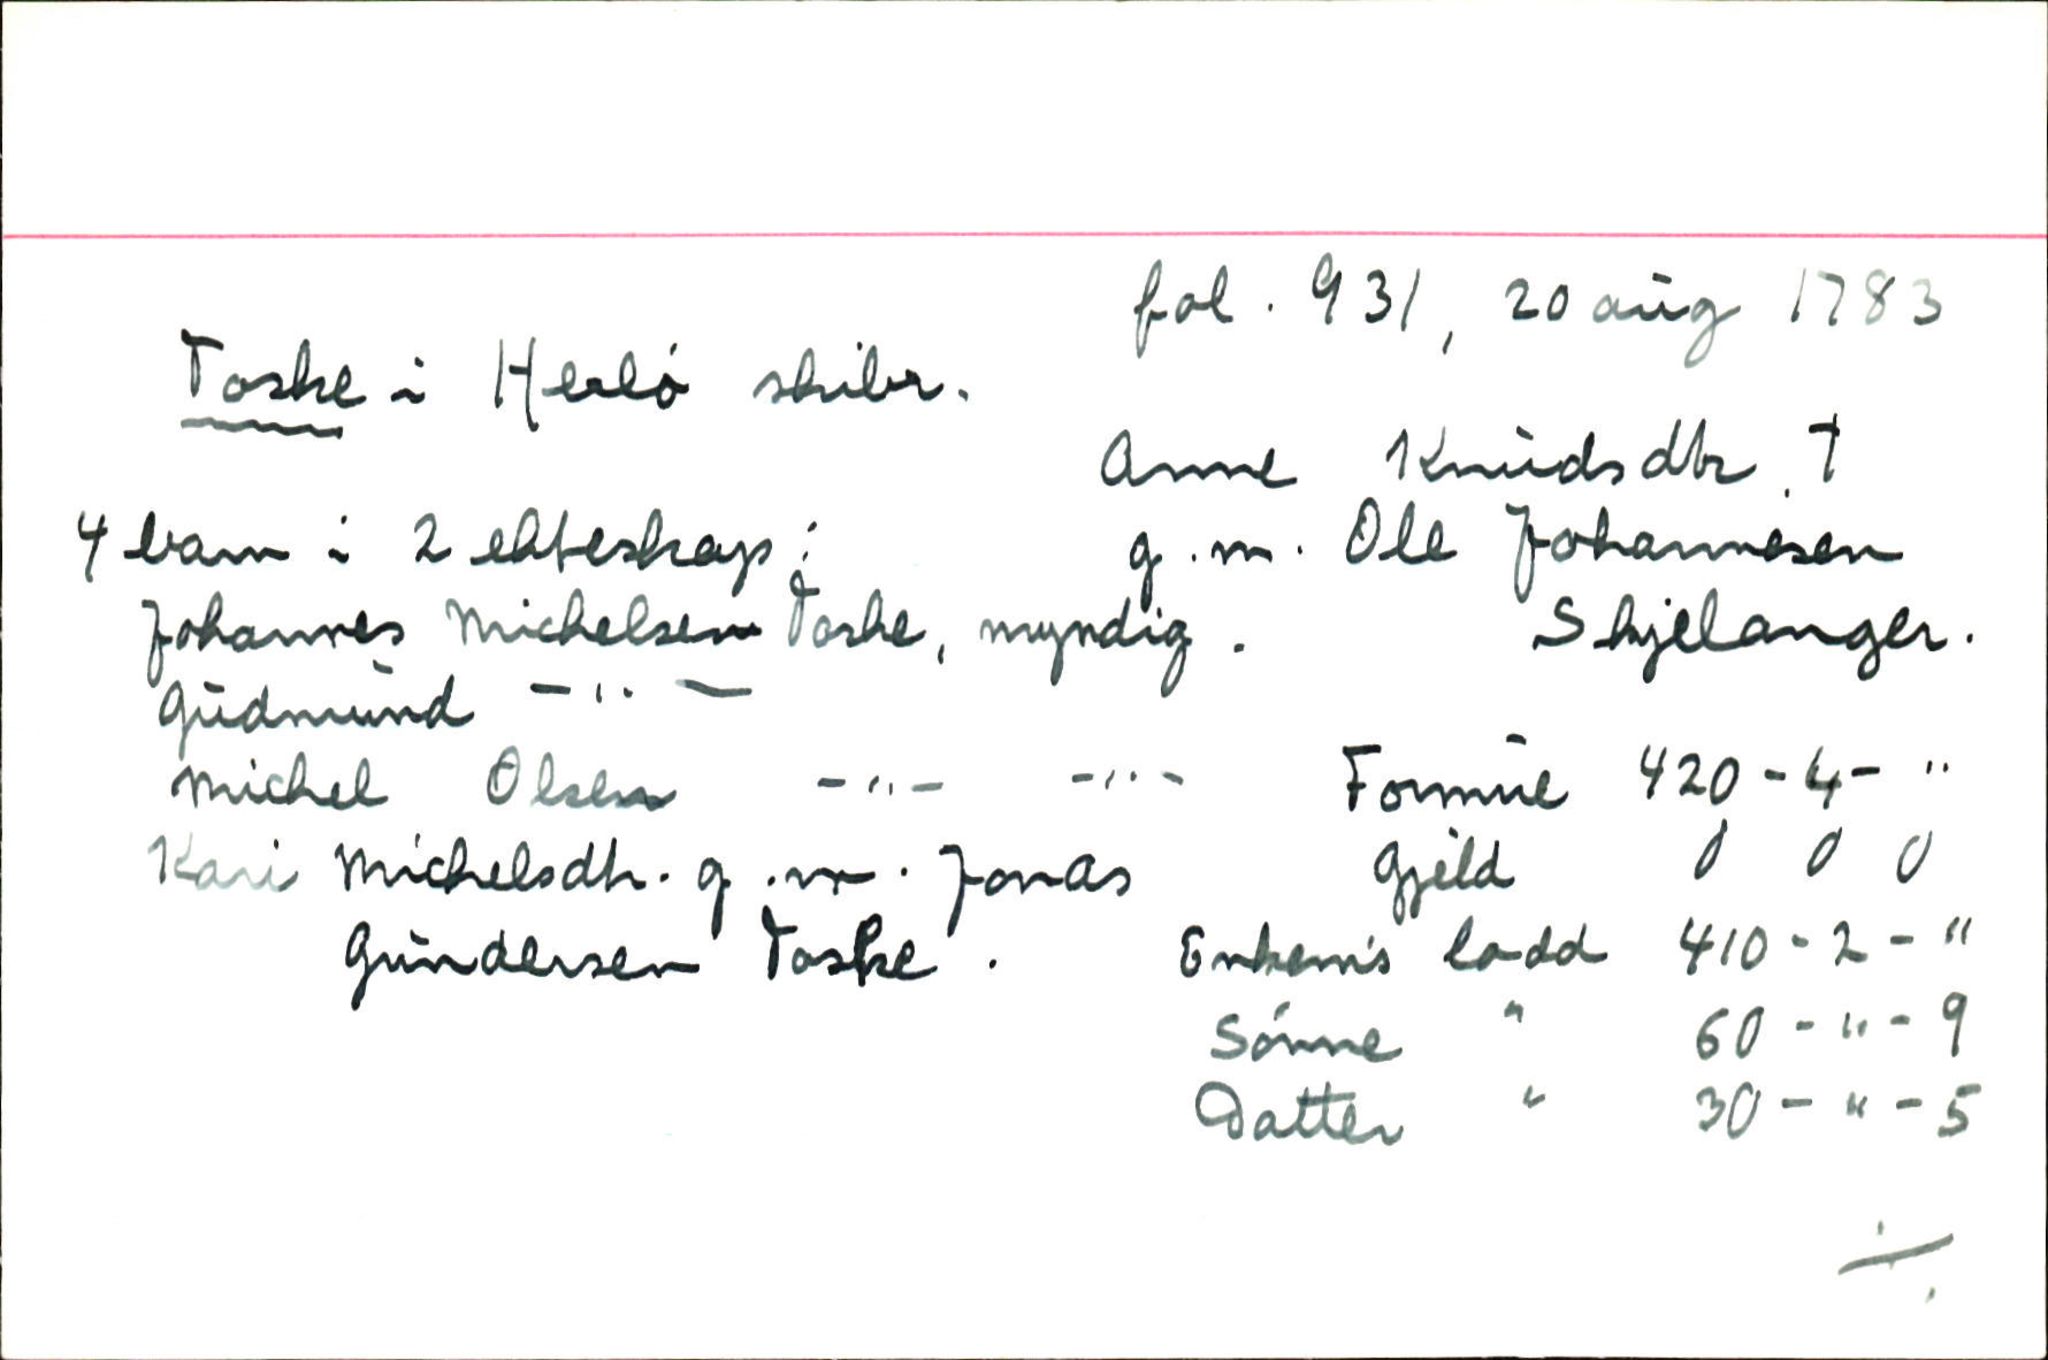 fol. 931, 20 aug 1783
Toske i Herlö skibr.
Anne Knudsdtr. †
g.m. Ole Johannesen
Skjelanger.
4 barn i 2 ekteskap:
Johannes Michelsen Toske, myndig.
Gudmund -"-
Michel Olsen -"- -"-
Kari Michelsdtr. g.m. Jonas
Gundersen Toske.
Formue 420-4-"
Gjeld 0 0 0
Enkem's lodd 410-2-"
Sønne " 60-"-9
Datter " 30-"-5